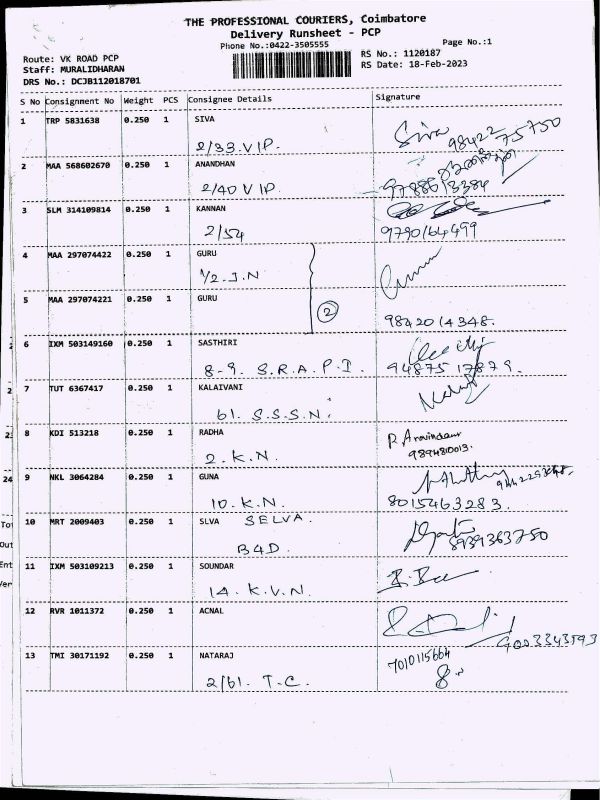 THE PROFESSIONAL COURIERS, Coimbatore
Delivery Runsheet - PCP
Phone No.:0422-3505555
Page No.:1
Route: VK ROAD PCP
Staff: MURALIDHARAN
DRS No.: DCJB112018701
RS No.: 1120187
RS Date: 18-Feb-2023
S No Consignment No Weight PCS Consignee Details Signature
1 TRP 5831638 0.250 1 SIVA
2/33 VIP. Siva 98422 75750
2 MAA 568602670 0.250 1 ANANDHAN
2/40 VIP 9788613384
3 SLM 314109814 0.250 1 KANNAN
2/54 9790164499
4 MAA 297074422 0.250 1 GURU
1/2. J.N
5 MAA 297074221 0.250 1 GURU
2
9842014348.
6 IXM 503149160 0.250 1 SASTHIRI
8-9. S.R.A.P.I. 9487517879.
7 TUT 6367417 0.250 1 KALAIVANI
61. S.S.S.N.
8 KDI 513218 0.250 1 RADHA
2. K.N. 9894810013.
9 NKL 3064284 0.250 1 GUNA
10. K.N. 8015463283.
10 MRT 2009403 0.250 1 SLVA SELVA.
B4D. 8939363750
11 IXM 503109213 0.250 1 SOUNDAR
14. K.V.N.
12 RVR 1011372 0.250 1 ACNAL
9003343593
13 TMI 30171192 0.250 1 NATARAJ
2/61. T.C. 7010115664